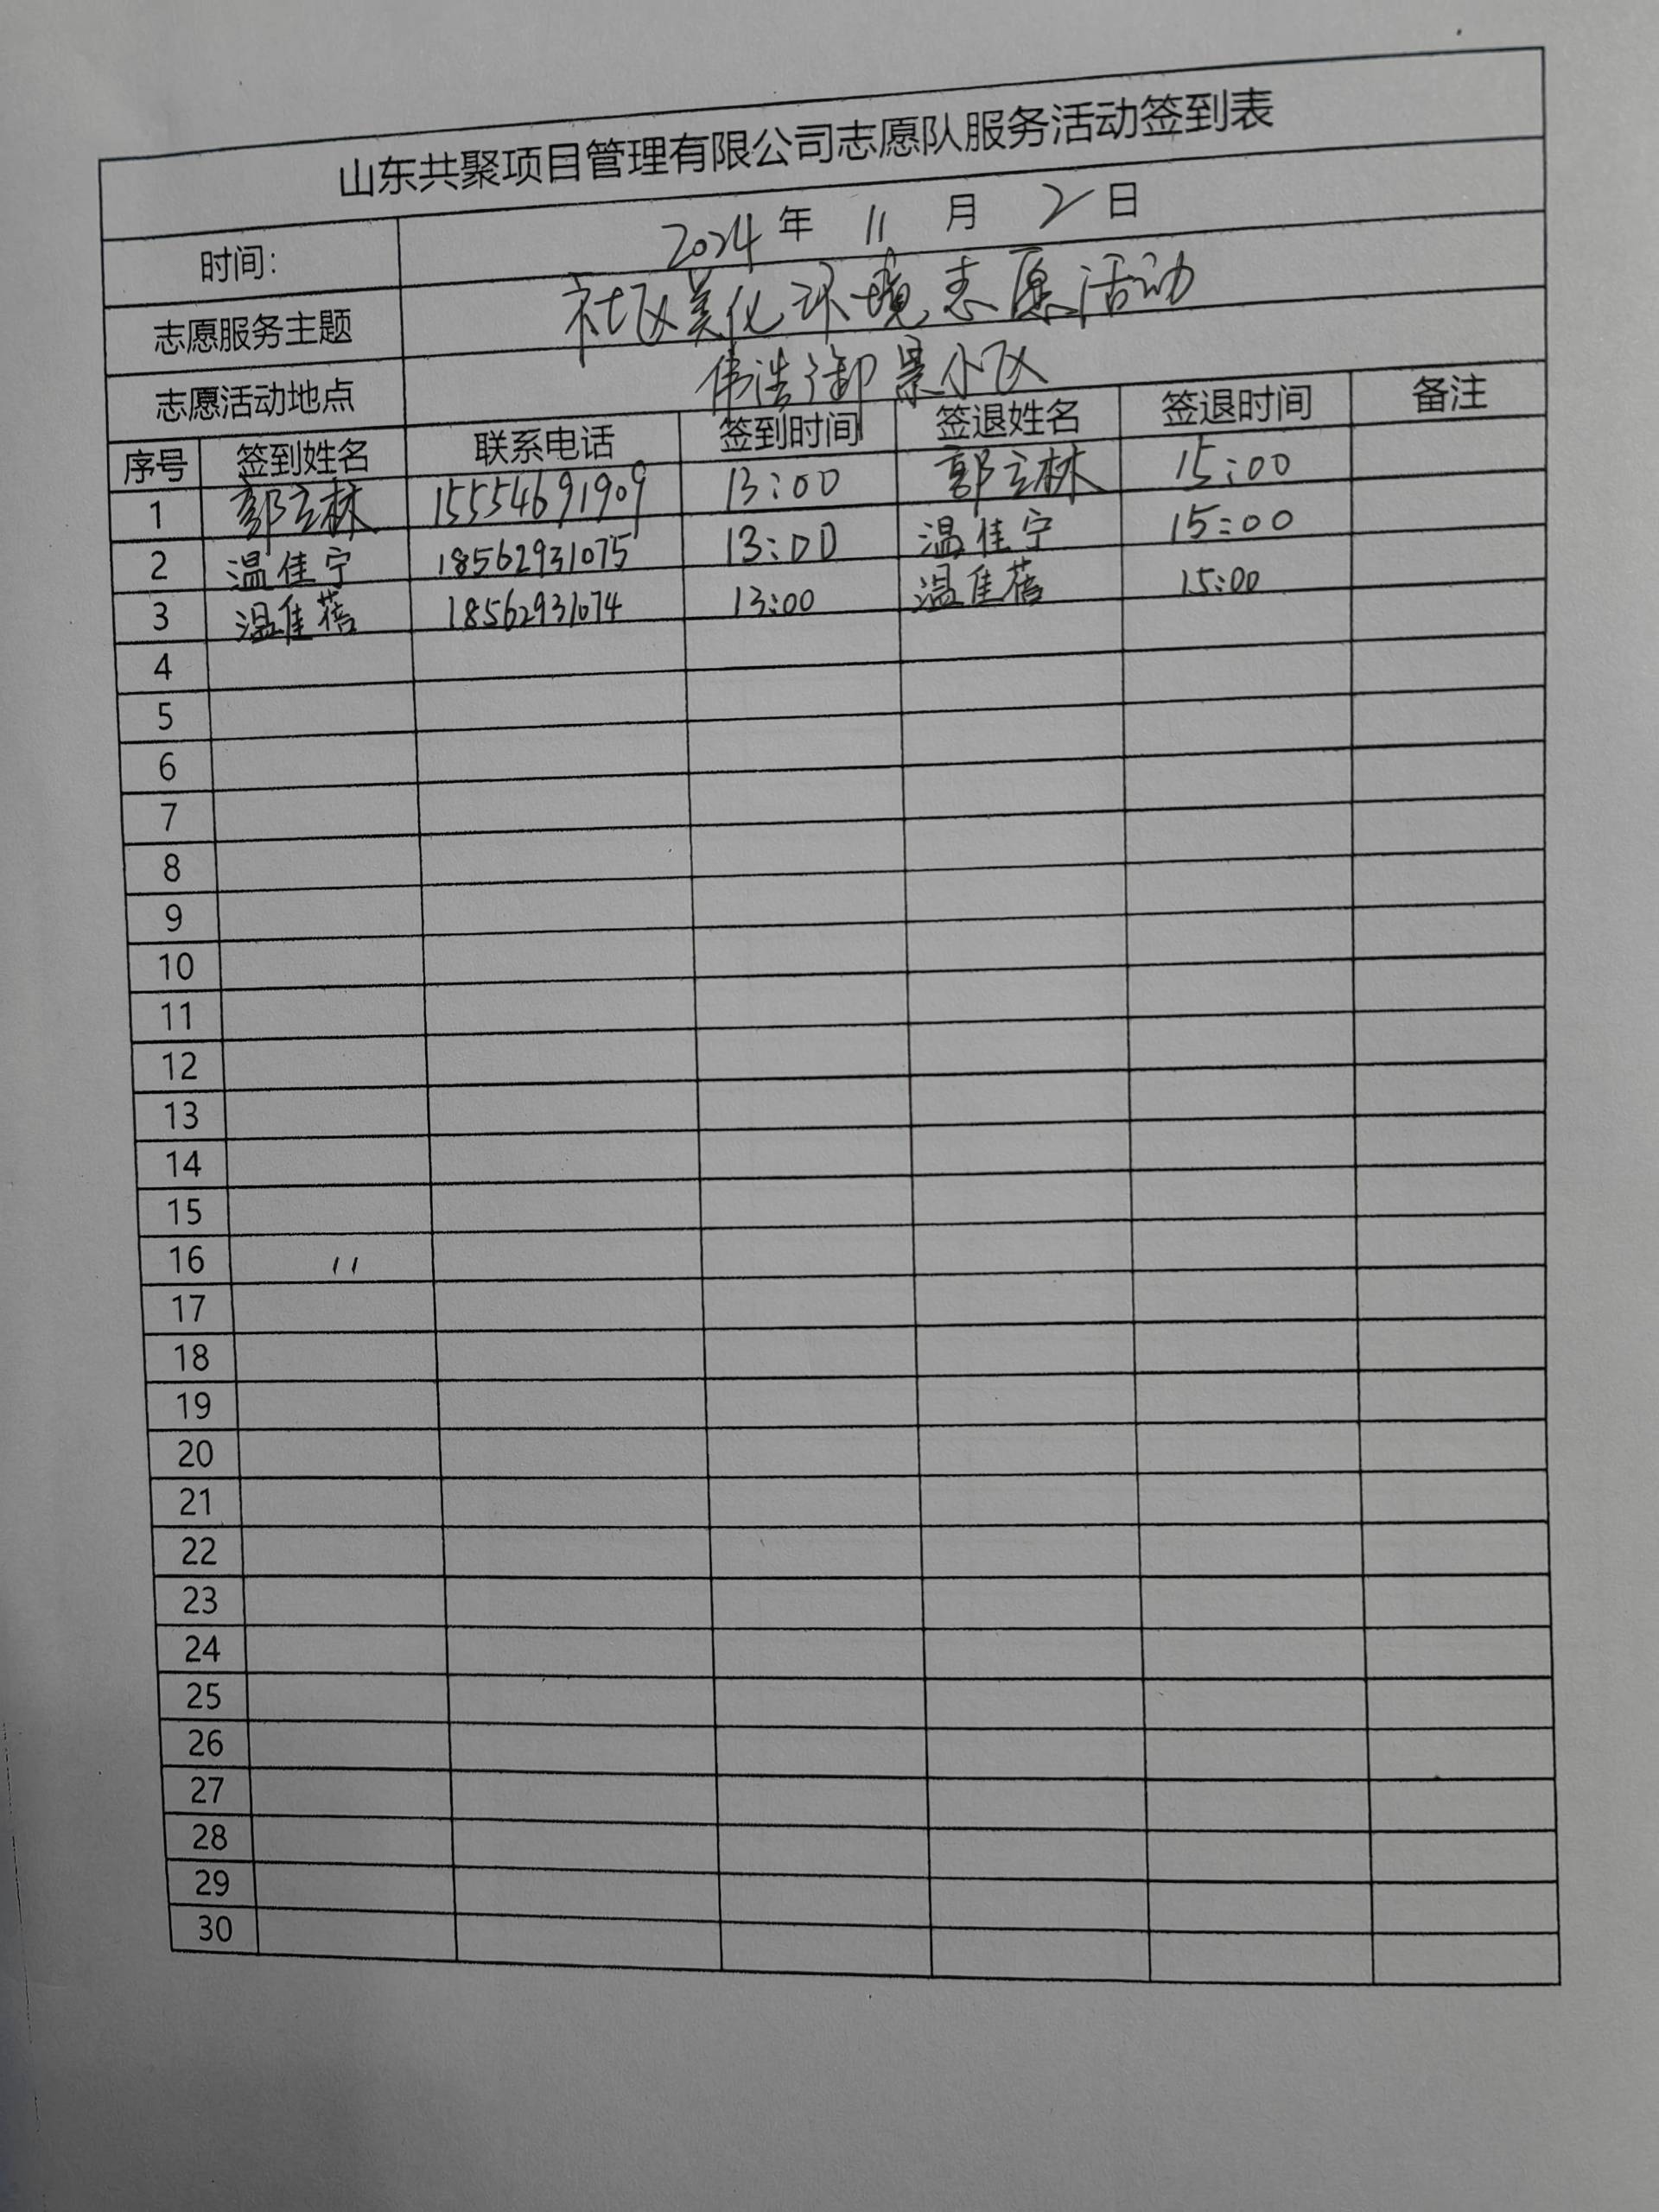 山东共聚项目管理有限公司志愿队服务活动签到表
时间: 2024 年 11 月 2 日
志愿服务主题 社区美化环境志愿活动
志愿活动地点 伟浩御景小区
序号 签到姓名 联系电话 签到时间 签退姓名 签退时间 备注
1 郭立林 15554691909 13:00 郭立林 15:00
2 温佳宁 18562931075 13:00 温佳宁 15:00
3 温佳蓓 18562931074 13:00 温佳蓓 15:00
4
5
6
7
8
9
10
11
12
13
14
15
16 ''
17
18
19
20
21
22
23
24
25
26
27
28
29
30